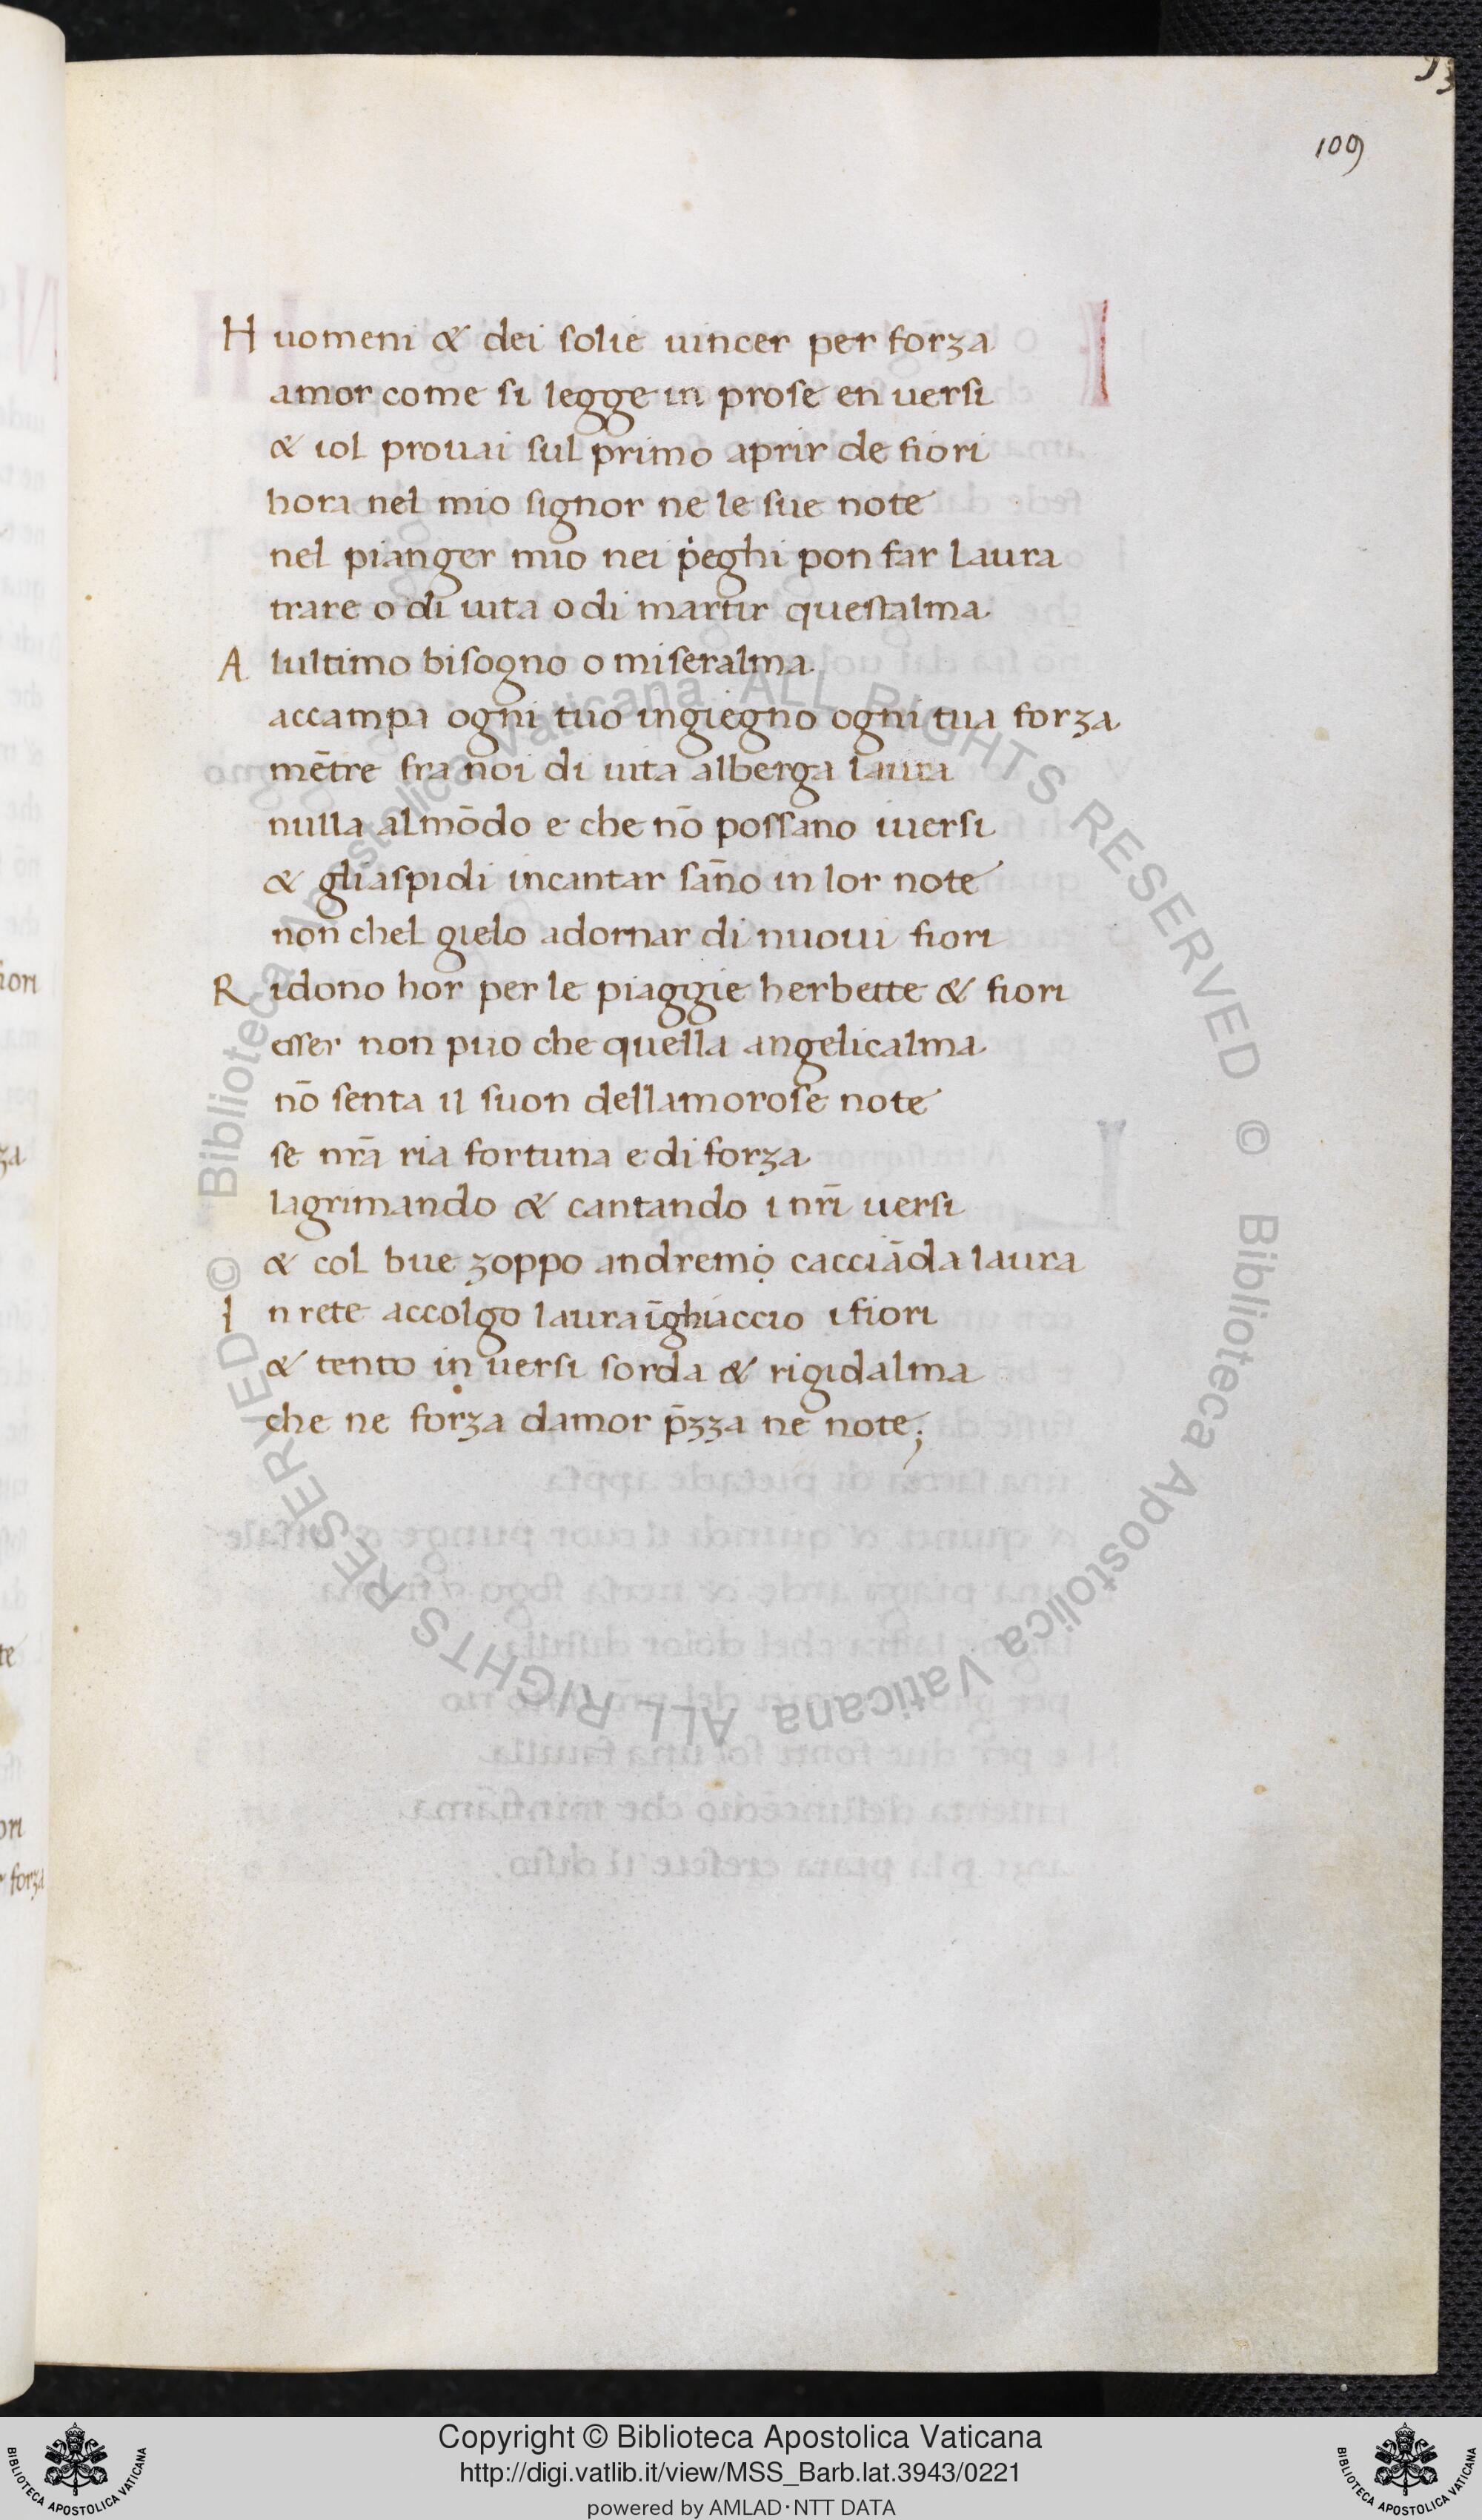 93
109
Huomeni & dei solie uincer per forza
amor come si legge in prose en uersi
& iol prouai sul primo aprir de fiori
hora nel mio signor ne le sue note
nel pianger mio nei p̍eghi pon far laura
trare o di uita o di martir questalma
A lultimo bisogno o miseralma
accampa ogni tuo ingiegno ogni tua forza
mētre fra noi di uita alberga laura
nulla almōdo e che nō possano iuersi
& gliaspidi incantar san̄o in lor note
non chel gielo adornar di nuoui fiori
Ridono hor per le piaggie herbette & fiori
esser non puo che quella angelicalma
nō senta il suon dellamorose note
se nr̄a ria fortuna e di forza
lagrimando & cantando i nr̄i uersi
& col bue zoppo andremo cacciāda laura
In rete accolgo laura īghiaccio ifiori
& tento in uersi sorda & rigidalma
che ne forza damor p̄zza ne note;
Copyright © Biblioteca Apostolica Vaticana
http://digi.vatlib.it/view/MSS_Barb.lat.3943/0221
powered by AMLAD·NTT DATA